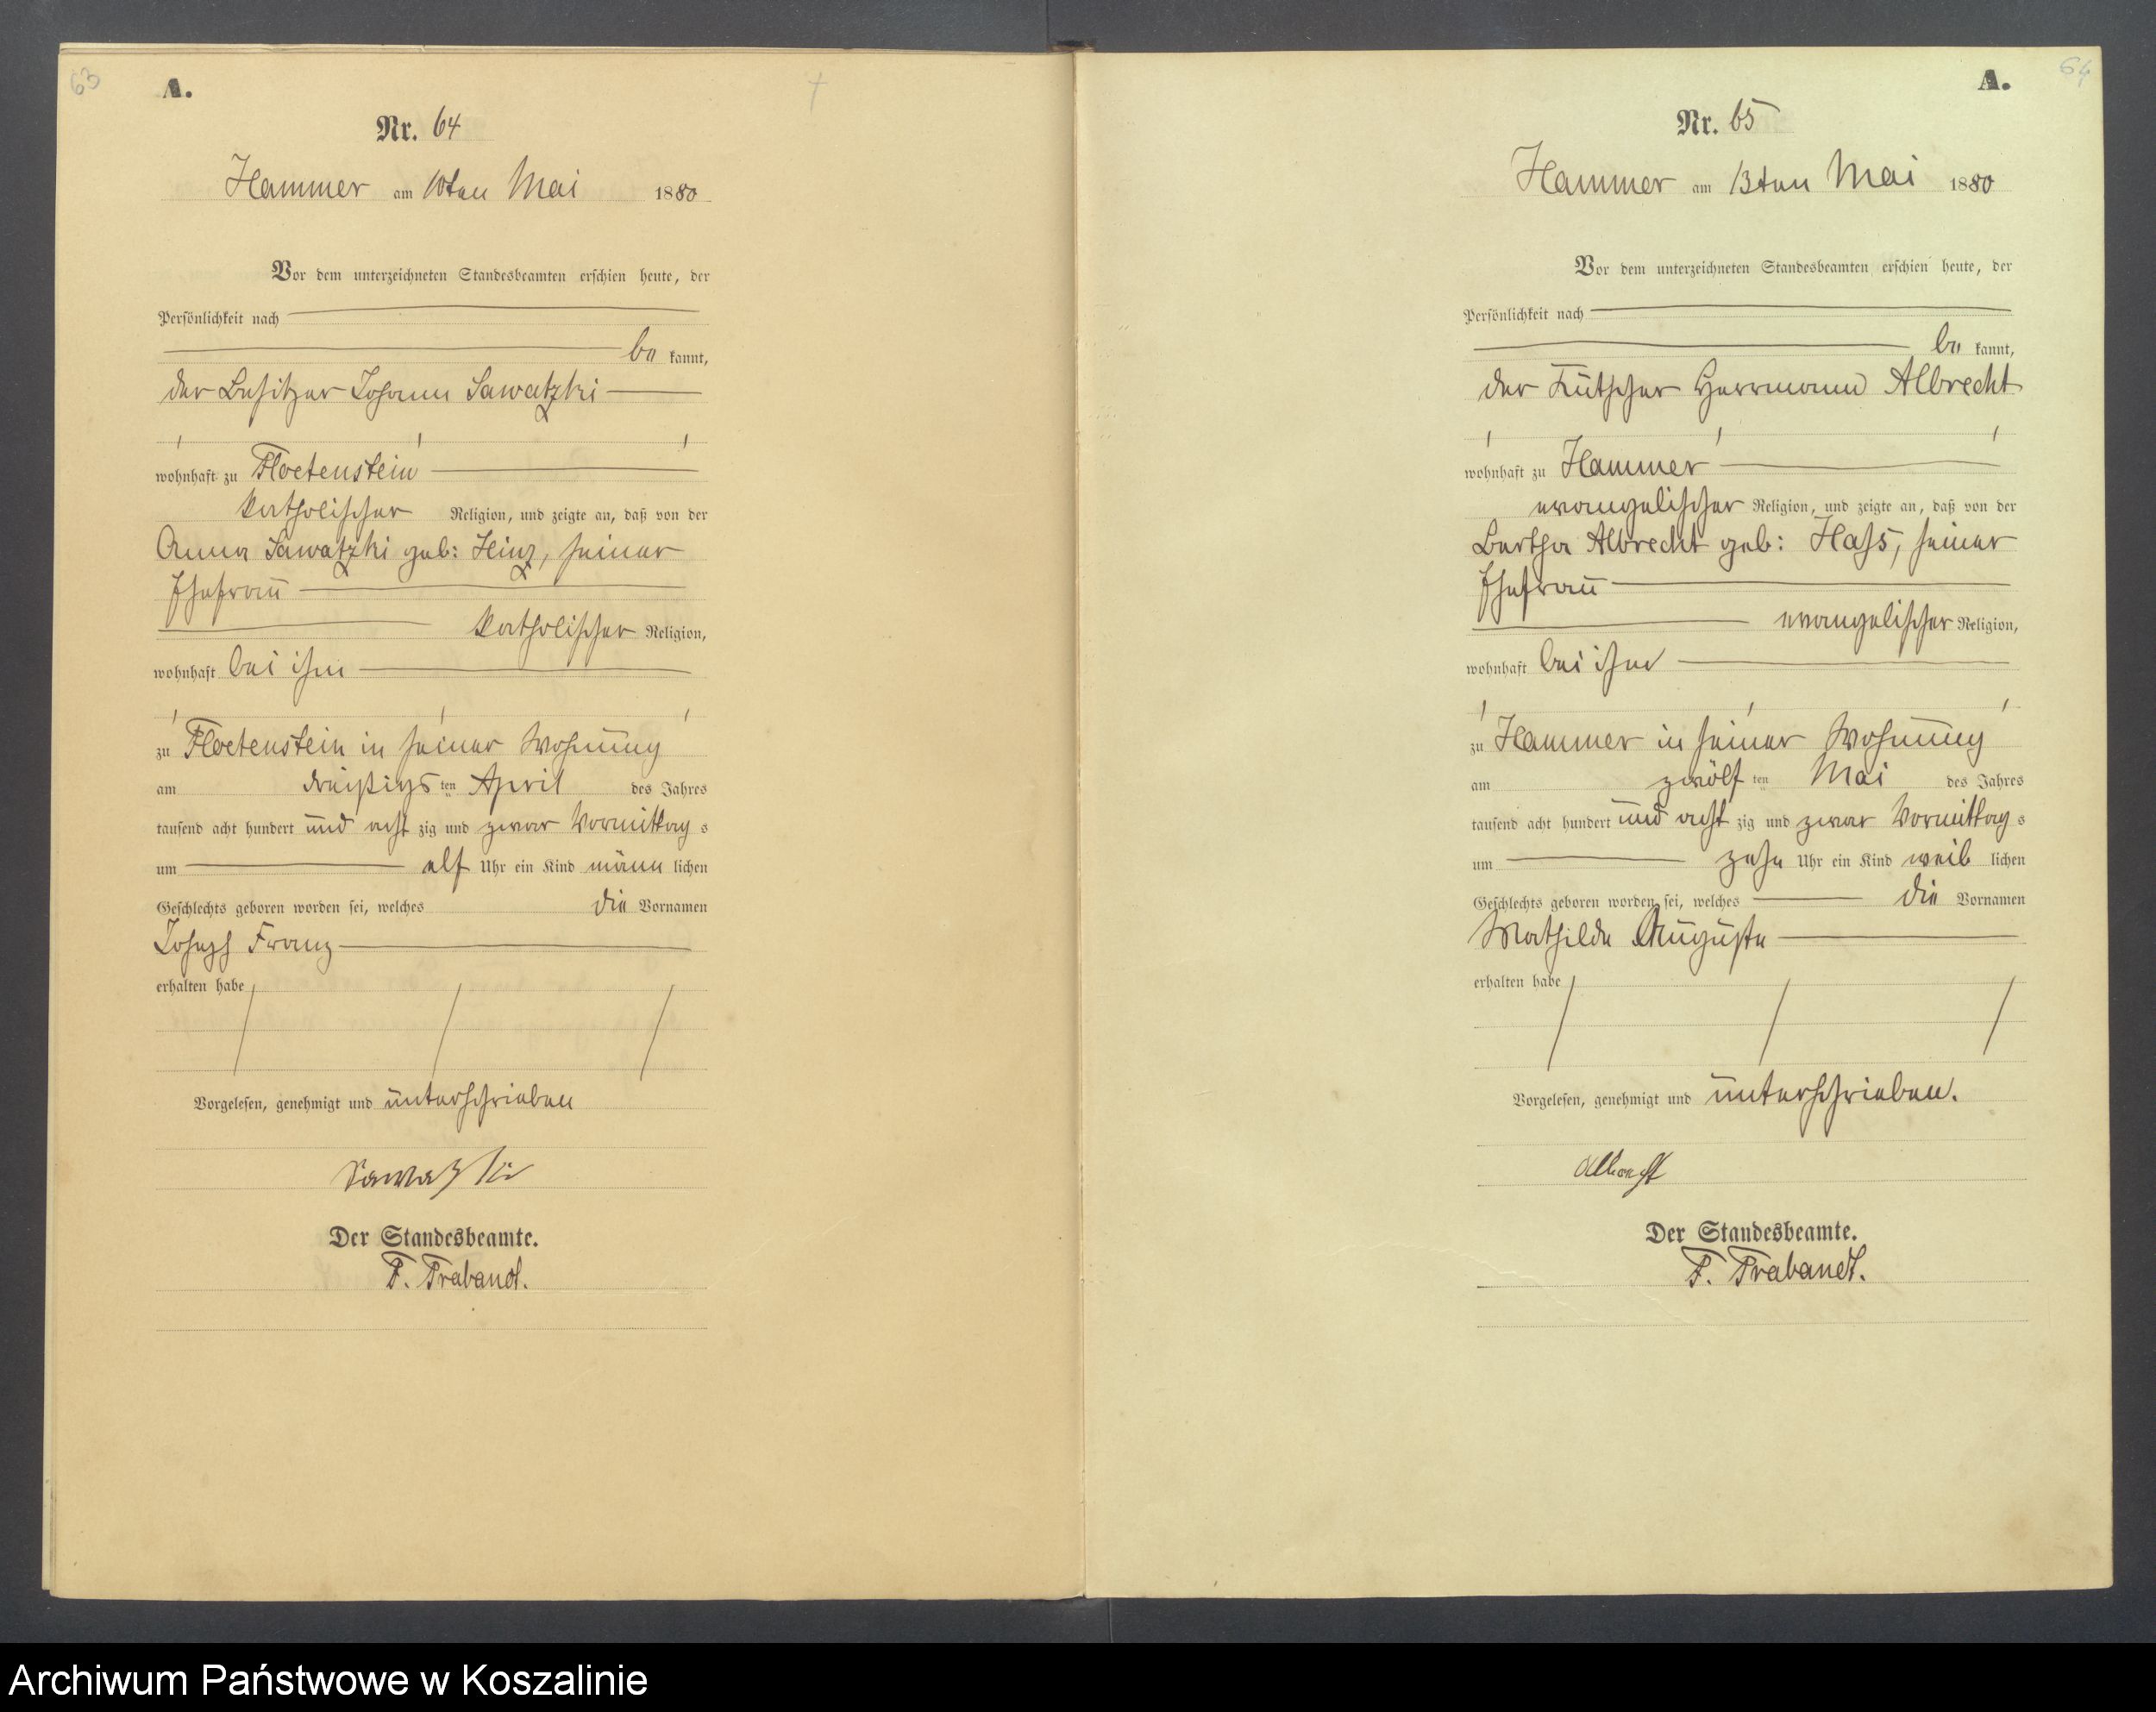 63
A.
Nr. 64
Hammer am 10ten Mai 1880
Vor dem unterzeichneten Standesbeamten erschien heute, der
Persönlichkeit nach
be kannt,
der Besitzer Johann Sawatzki
wohnhaft zu Floetenstein
katholischer Religion, und zeigte an, daß von der
Anna Sawatzki geb: Hinz, seiner
Ehefrau
katholischer Religion,
wohnhaft bei ihm
zu Floetenstein in seiner Wohnung
am dreißigs ten April des Jahres
tausend acht hundert und acht zig und zwar Vormittag s
um elf Uhr ein Kind männ lichen
Geschlechts geboren worden sei, welches die Vornamen
Joseph Franz
erhalten habe
Vorgelesen, genehmigt und unterschrieben
Sawatzki
Der Standesbeamte.
F. Trabandt.
64
A.
Nr. 65
Hammer am 13ten Mai 1880
Vor dem unterzeichneten Standesbeamten erschien heute, der
Persönlichkeit nach
be kannt,
der Kutscher Herrmann Albrecht
wohnhaft zu Hammer
evangelischer Religion, und zeigte an, daß von der
Bertha Albrecht geb: Hass, seiner
Ehefrau
evangelischer Religion,
wohnhaft bei ihm
zu Hammer in seiner Wohnung
am zwölf ten Mai des Jahres
tausend acht hundert und acht zig und zwar Vormittag s
um zehn Uhr ein Kind weib lichen
Geschlechts geboren worden sei, welches die Vornamen
Mathilde Auguste
erhalten habe
Vorgelesen, genehmigt und unterschrieben.
Albrecht
Der Standesbeamte.
F. Trabandt.
Archiwum Państwowe w Koszalinie